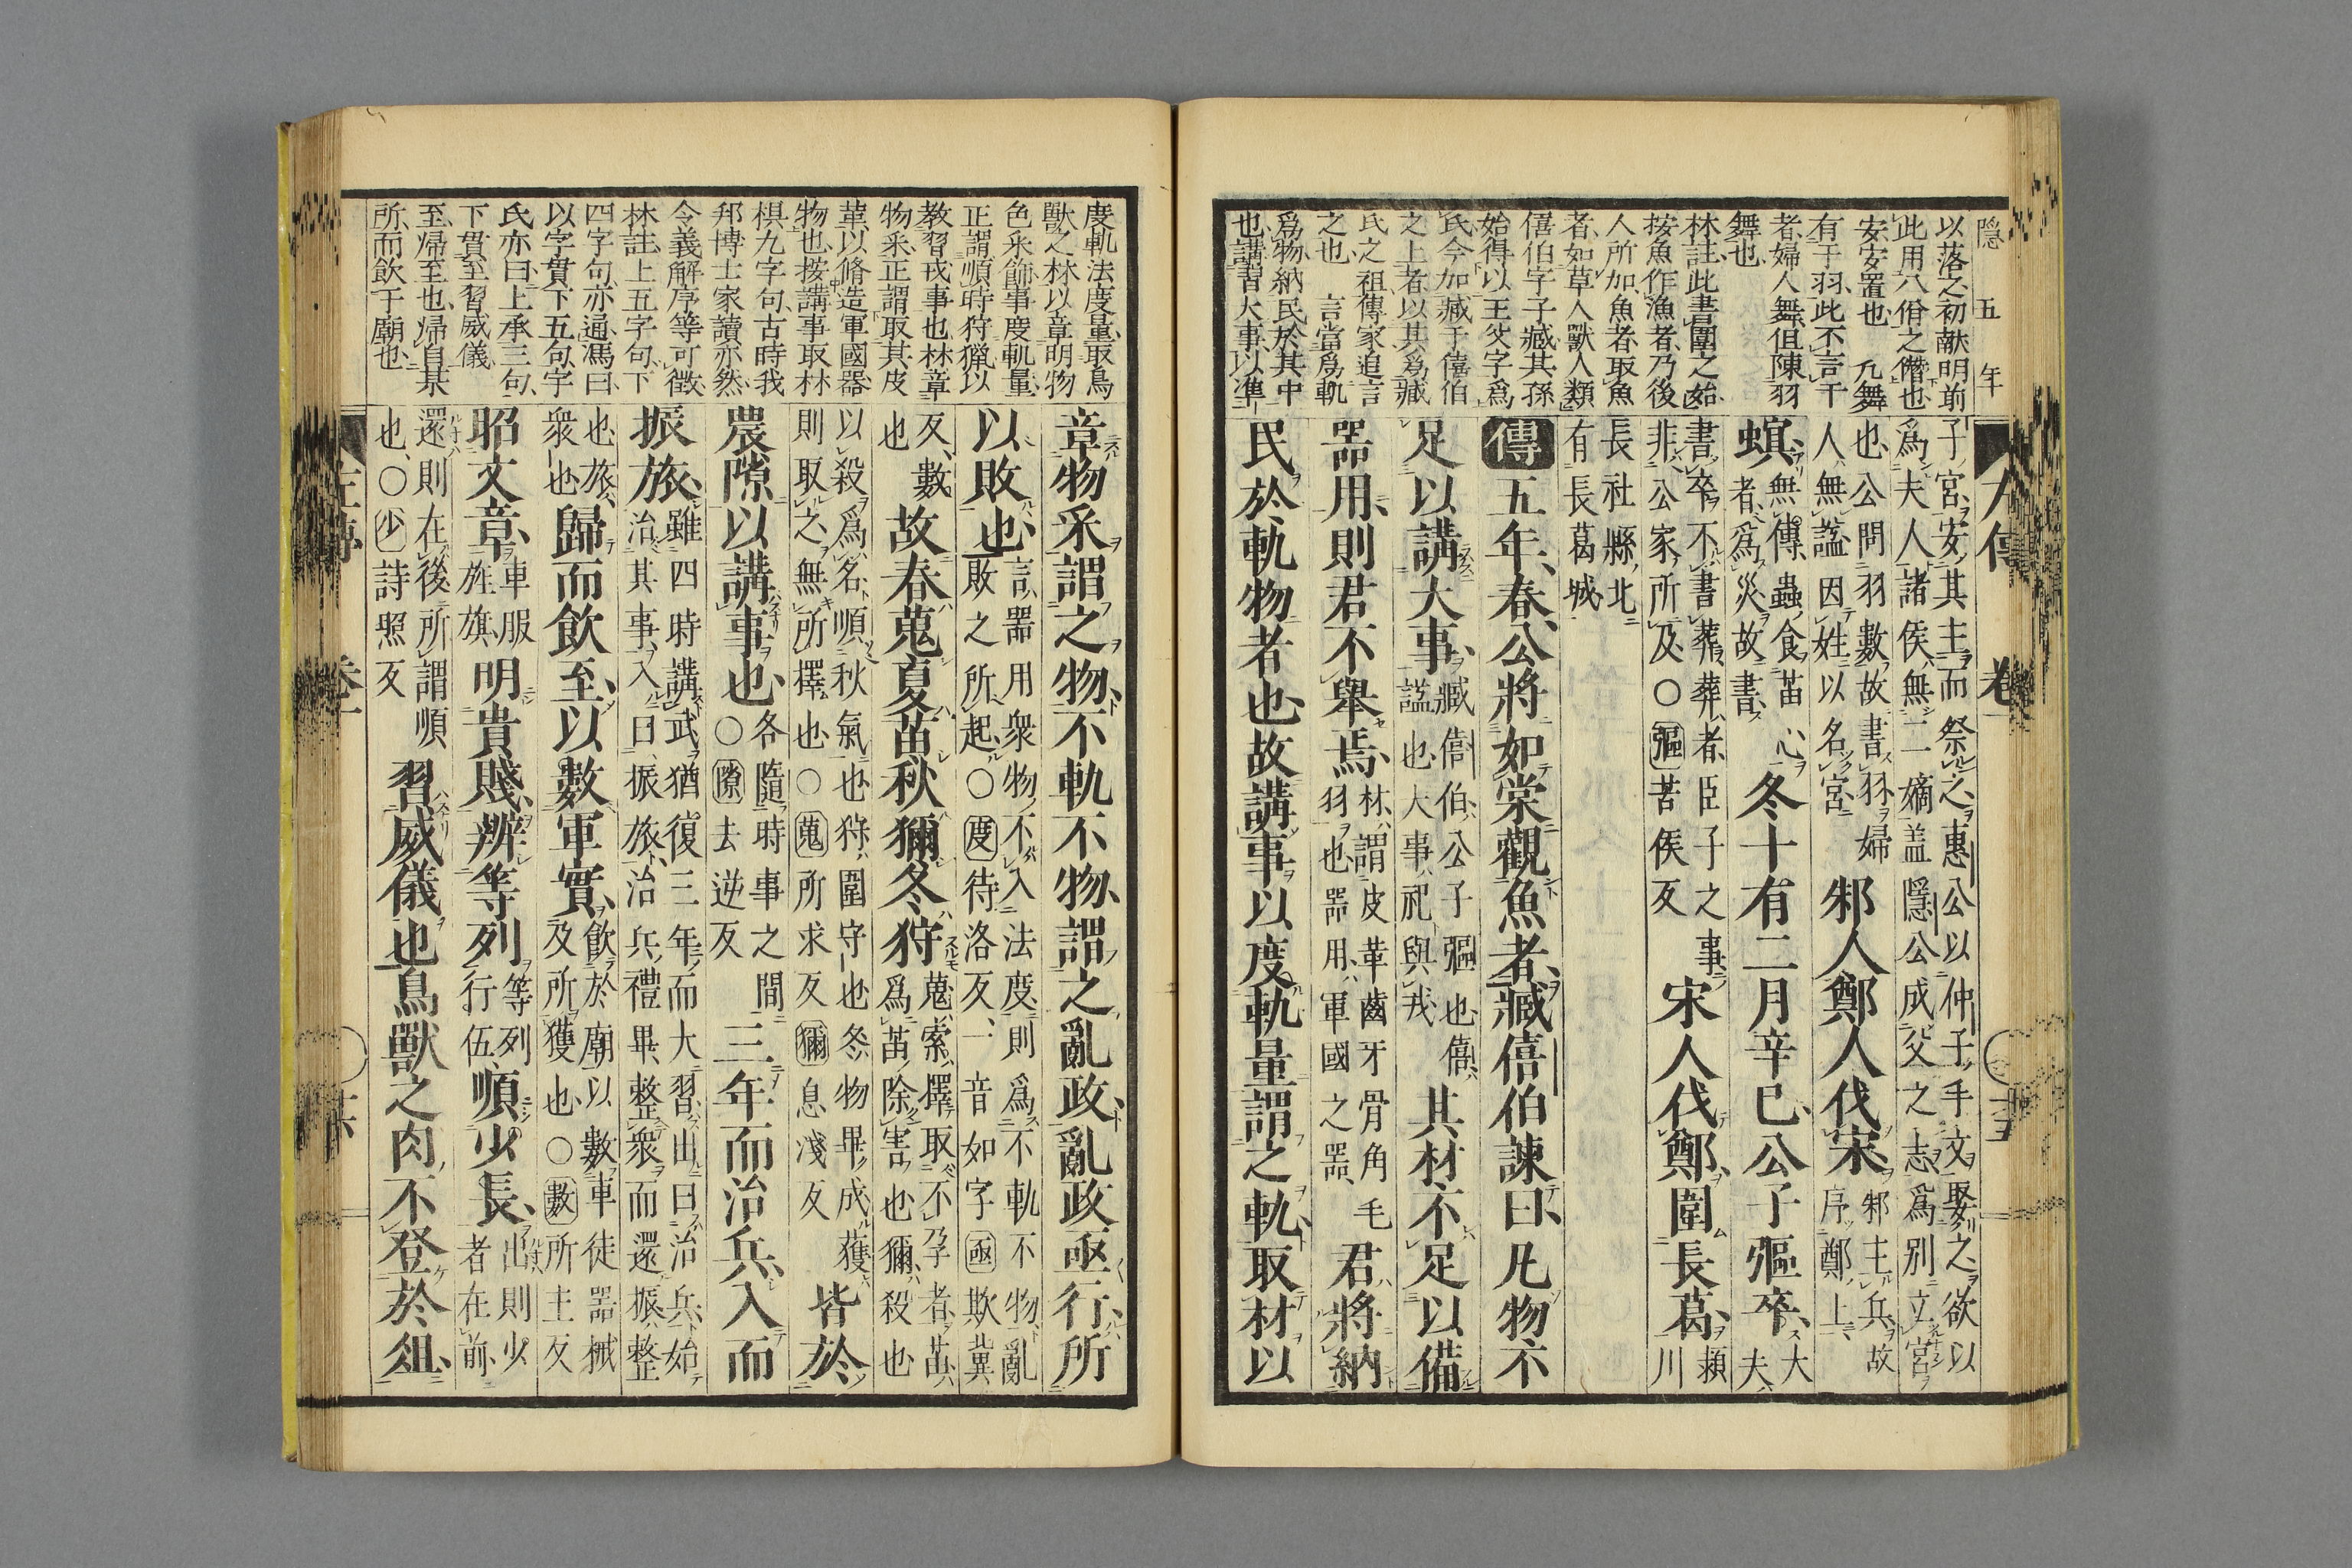 隠 五 年
以落之初献明前
此用六佾之僭也
安安置也 凡舞
有于羽此不言干
者婦人舞但陳羽
舞也
林註此書圍之始
按魚作漁者乃後
人所加魚者取魚
者如草人獸人類
僖伯字子臧其孫
始得以王父字爲
氏今加臧于僖伯
之上者以其爲臧
氏之祖傳家追言
之也 言當爲軌
爲物納民於其中
也講習大事以準
子宮安其主而祭之惠公以仲子手文娶之欲以
爲夫人諸侯無二嫡盖隱公成父之志爲別立宮
也公問羽數故書羽婦
人無謚因姓以名宮
邾人鄭人伐宋
邾主兵故
序鄭上
螟
無傳蟲食苗心
者爲災故書
冬十有二月辛巳公子彄卒
大
夫
書卒不書葬葬者臣子之事
非公家所及○彄苦侯反
宋人伐鄭圍長葛
頴
川
長社縣北
有長葛城
傳五年春公將如棠觀魚者臧僖伯諫曰凡物不
足以講大事
臧僖伯公子彄也僖
謚也大事祀與戎
其材不足以備
器用則君不舉焉
林謂皮革齒牙骨角毛
羽也器用軍國之器
君將納
民於軌物者也故講事以度軌量謂之軌取材以
度軌法度量取鳥
獸之材以章明物
色采飾事度軌量
正謂順時狩獵以
教習戎事也林章
物采正謂取其皮
革以脩造軍國器
物也按講事取材
棋九字句古時我
邦博士家讀亦然
令義解序等可徴
林註上五字句下
四字句亦通馮曰
以字貫下五句宇
氏亦曰上承三句
下貫至習威儀
至帰至也帰自某
所而飲于廟也
章物采謂之物不軌不物謂之亂政亂政亟行所
以敗也
言器用衆物不入法度則爲不軌不物亂
敗之所起○度待洛反一音如字亟欺冀
反數
也
故春蒐夏苗秋獮冬狩
蒐索擇取不孕者苗
爲苗除害也獮殺也
以殺爲名順秋氣也狩圍守也冬物畢成獲
則取之無所擇也○蒐所求反獮息淺反
皆於
農隙以講事也
各隨時事之間
○隙去逆反
三年而治兵入而
振旅
雖四時講武猶復三年而大習出曰治兵始
治其事入曰振旅治兵禮畢整衆而還振整
也旅
衆也
歸而飲至以數軍實
飲於廟以數車徒器械
及所獲也○數所主反
昭文章
車服
旌旗
明貴賤辨等列
等列
行伍
順少長
出則少
者在前
還則在後所謂順
也○少詩照反
習威儀也鳥獸之肉不登於俎